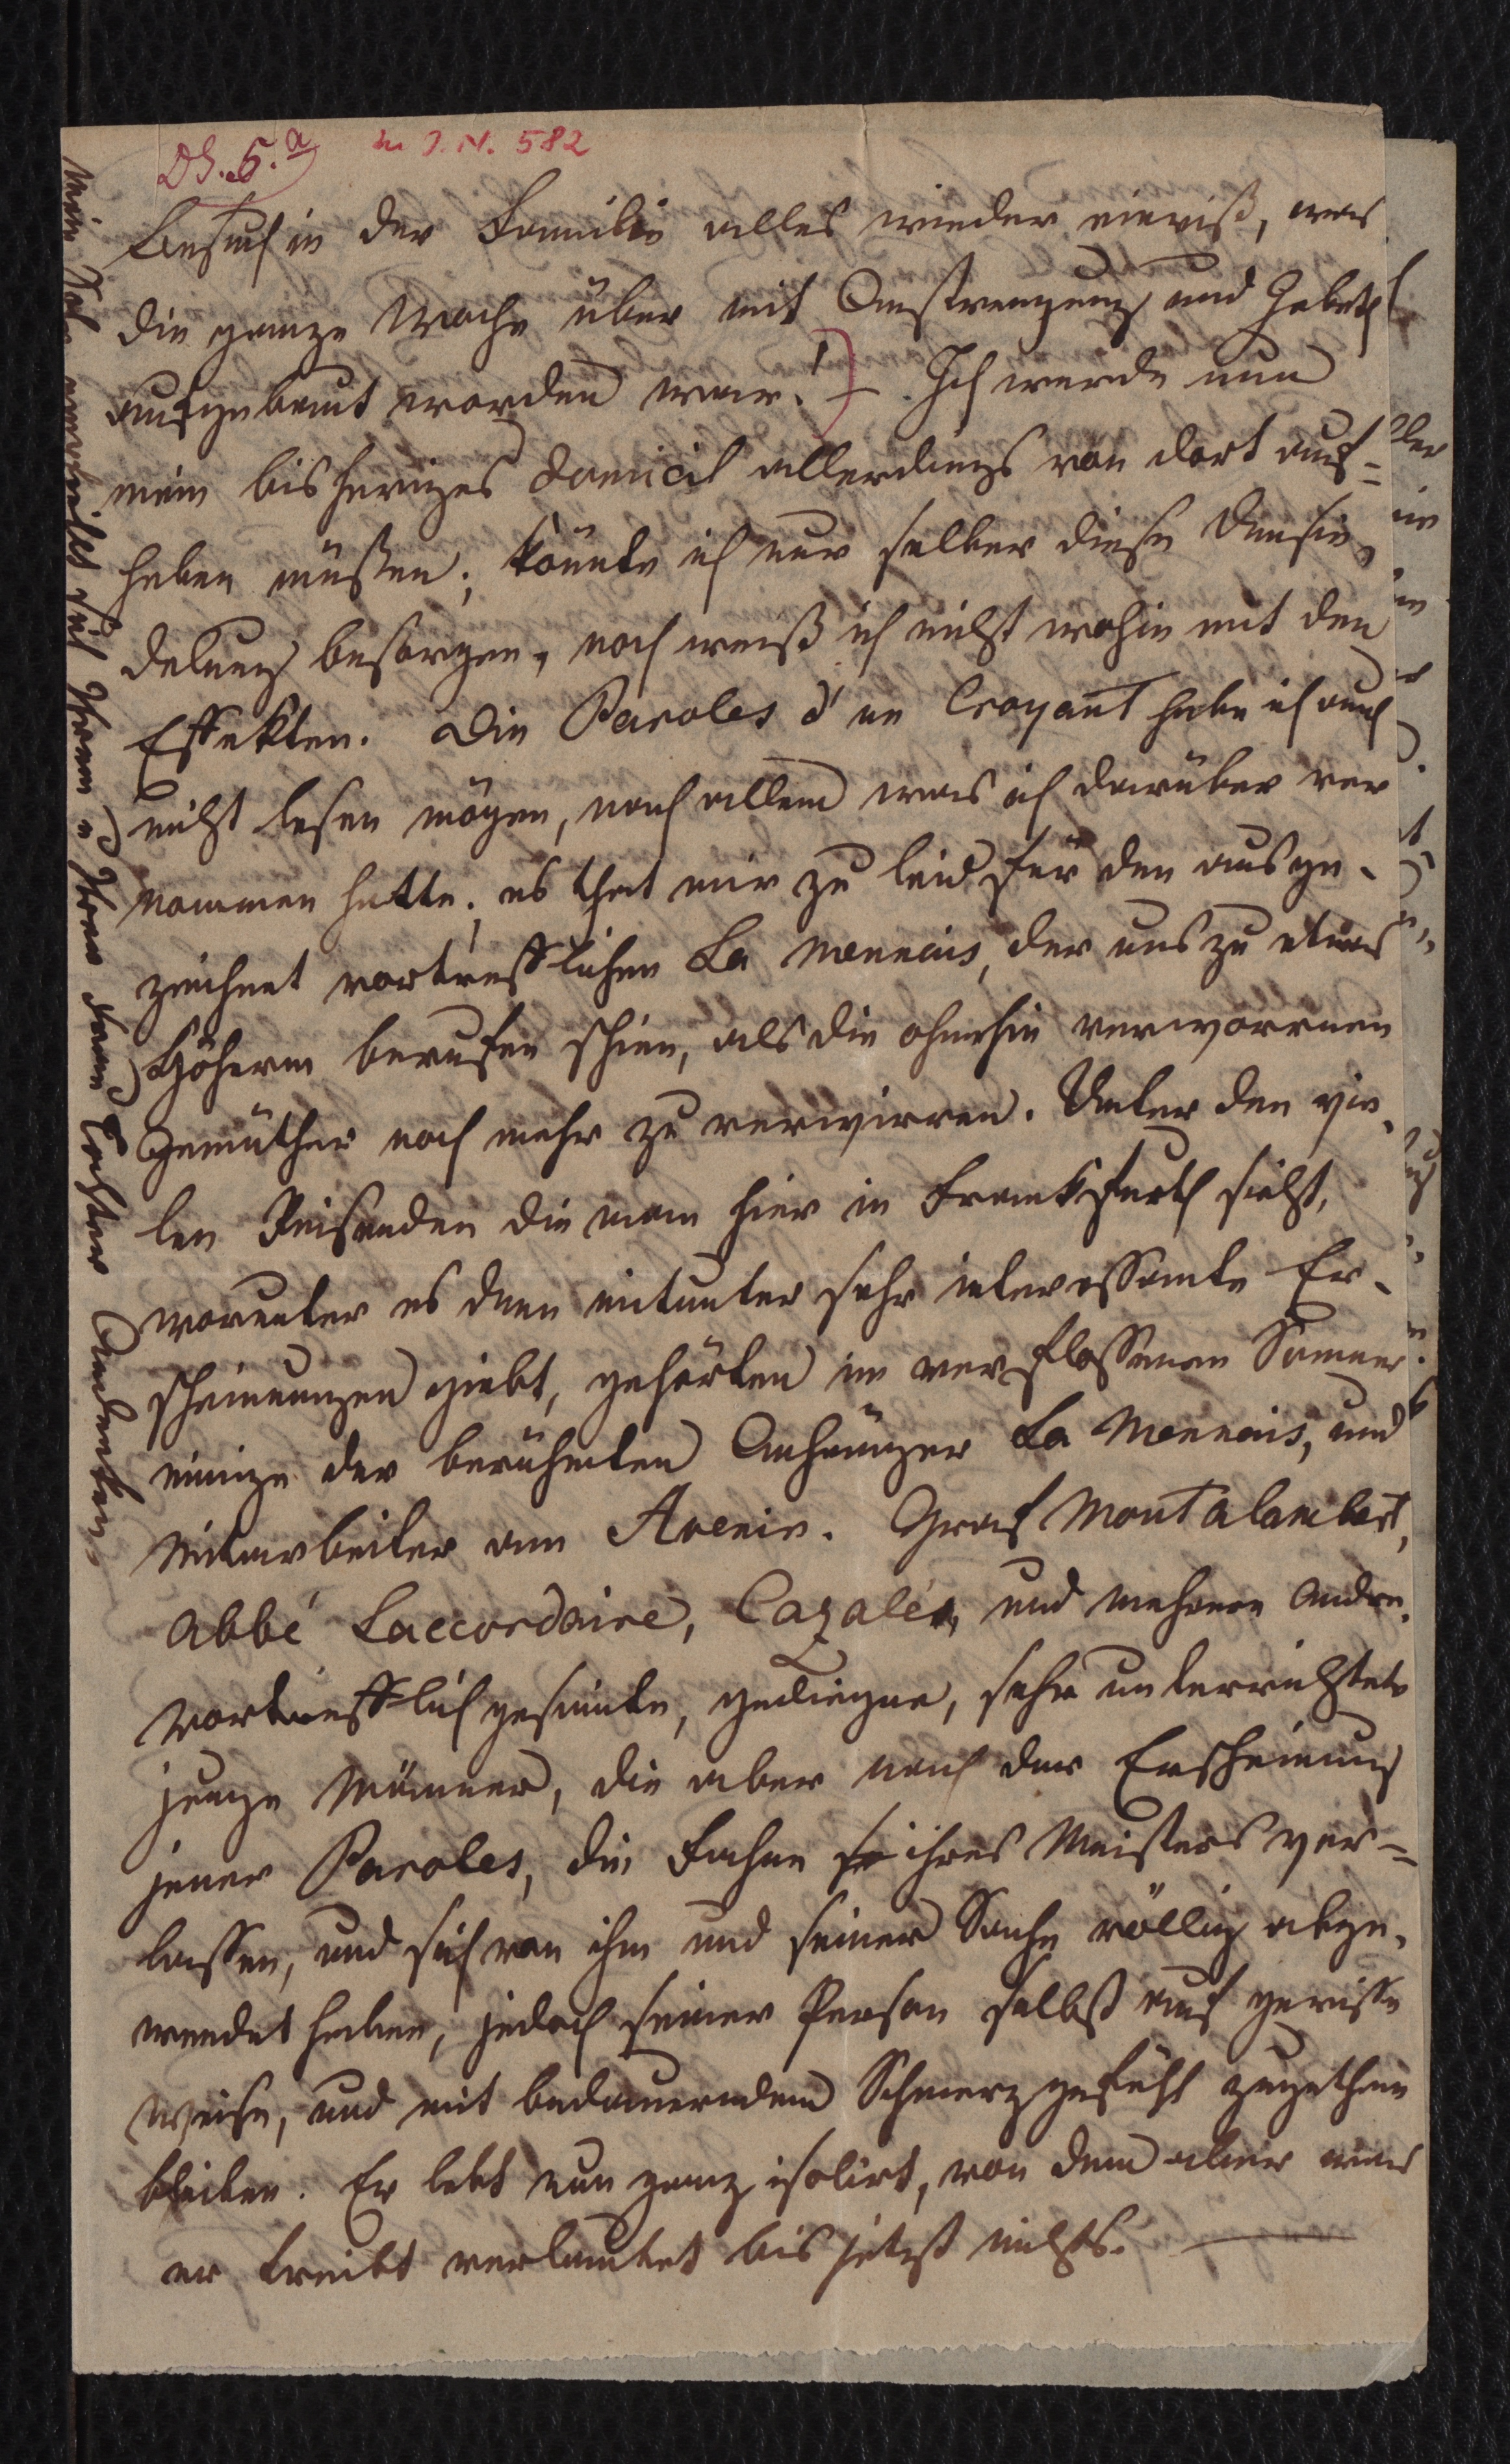 DS. 5.a
zu J. N. 582
Besuch in der Familie alles wieder einriß, was
die ganze Woche über mit Anstrengung und Gebeth
aufgebaut worden war! – Ich werde nun
mein bisheriges Domicil allerdings von dort auf=
heben müßen; könnte ich nur selber diese Umsie,
delung besorgen, noch weiß ich nicht wohin mit den
Effekten. Die Paroles d'un Croyant habe ich auch
nicht lesen mögen, nach allem was ich darüber ver
nommen hatte; es that mir zu leid für den ausge-
zeichnet vortrefflichen La Mennais, der uns zu etwas
Höherm berufen schien, als die ohnehin verworrnen
Gemüther noch mehr zu verwirren. Unter den vie,
len Reisenden die man hier in Frankfurth sieht,
worunter es denn mitunter sehr interessante Er-
scheinungen giebt, gehörten im verflossenen Sommer
einige der berühmten Anhänger La Mennais, und
Mitarbeiter am Avenir. Graf Montalambert,
Abbé Laccordaire, Cazalés, und mehrere andre.
Vortrefflich gesinnte, gediegne, sehr unterrichtete
junge Männer, die aber nach der Erscheinung
jener Paroles, die Fahne se ihres Meisters ver=
lassen, und sich von ihm und seiner Sache völlig abge,
wendet haben, jedoch seiner Person selbst auf gewisse
Weise, und mit bedauerndem Schmerzgefühl zugethan
bleiben. Er lebt nun ganz isolirt, von dem aber was
er treibt verlautet bis jetzt nichts. —
Mein Sohn Ihrem u Ihrer Frau Tochter Andenken